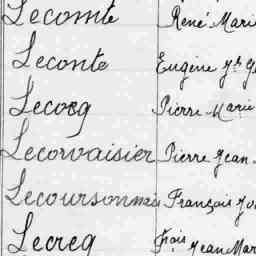 Lecomte René Marie
Leconte Eugène Jh
Lecocq Pierre Marie
Lecorvaisier Pierre Jean
Lecoursonnais François
Lecreq Frçois Jean Mar